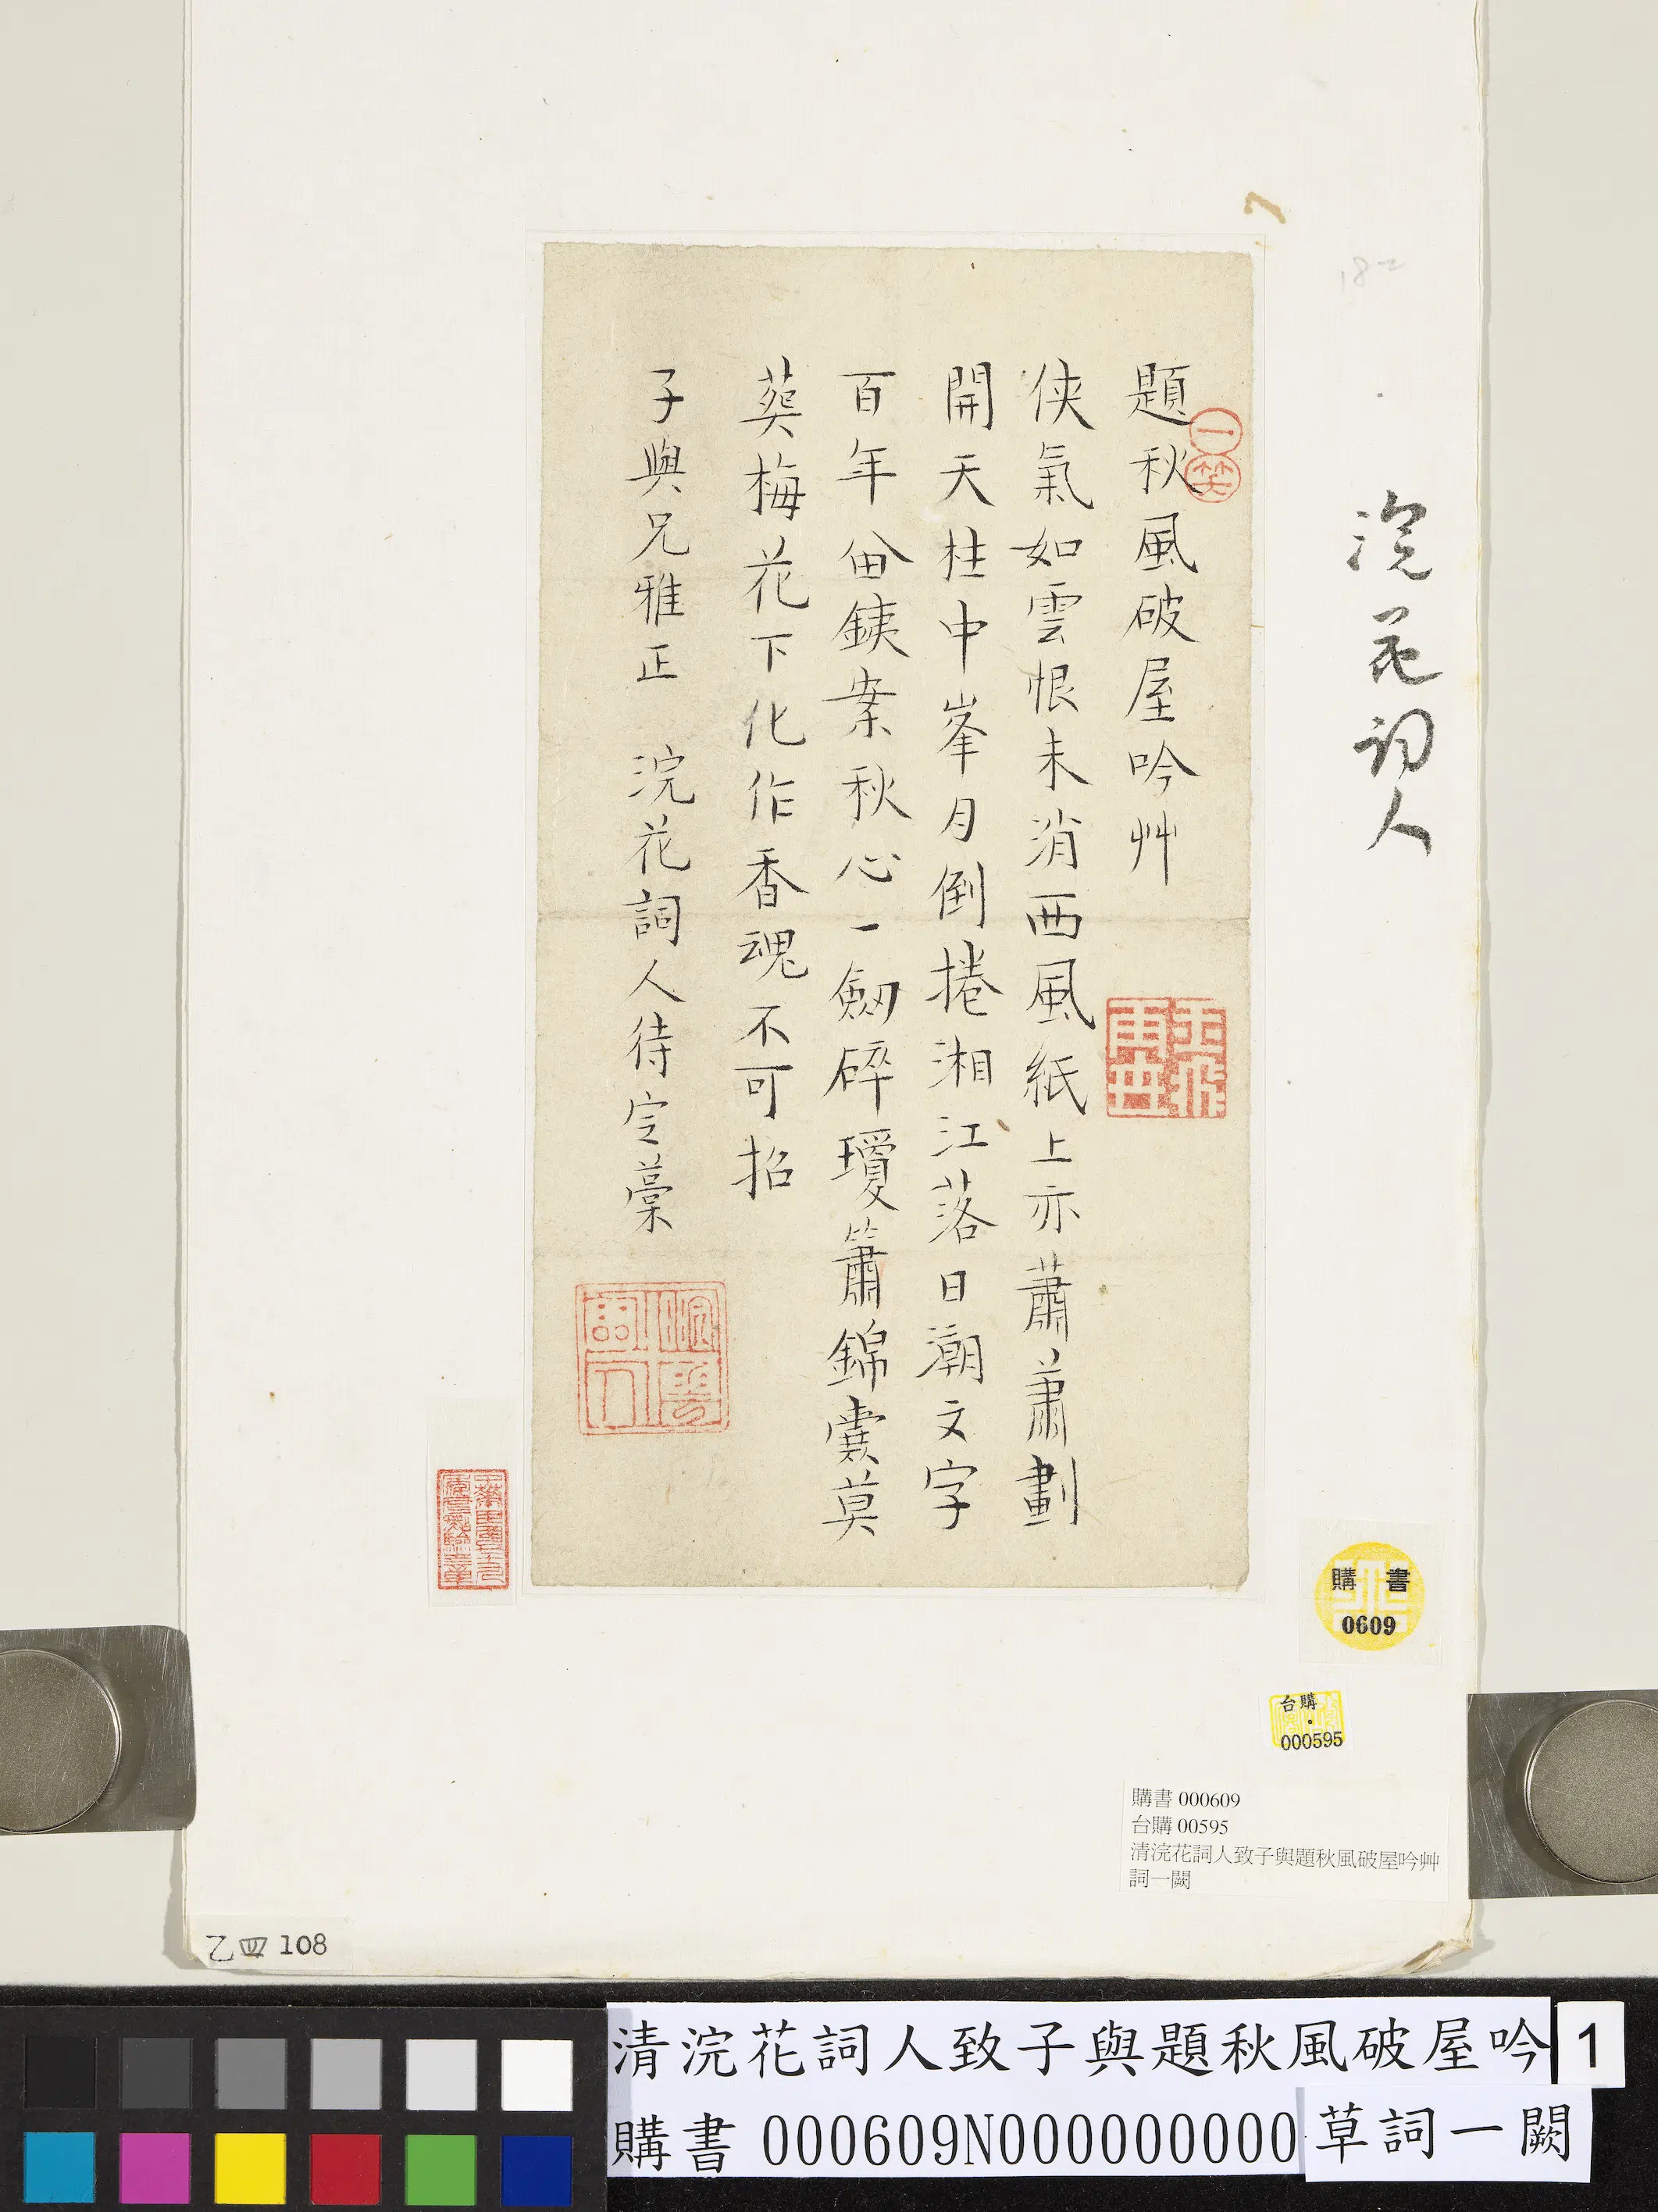 題秋風破屋吟艸
俠氣如雲恨未消西風紙上亦蕭蕭劃
開天柱中峯月倒捲湘江落日潮文字
百年留鐵案秋心一劍碎瓊簫錦囊莫
葬梅花下化作香魂不可招
子與兄雅正 浣花詞人待定藁
一笑
浣花詞人
182
購書
0609
台購
000595
購書 000609
台購 00595
清浣花詞人致子與題秋風破屋吟艸
詞一闕
乙四 108
清浣花詞人致子與題秋風破屋吟
1
購書 000609N000000000
草詞一闕